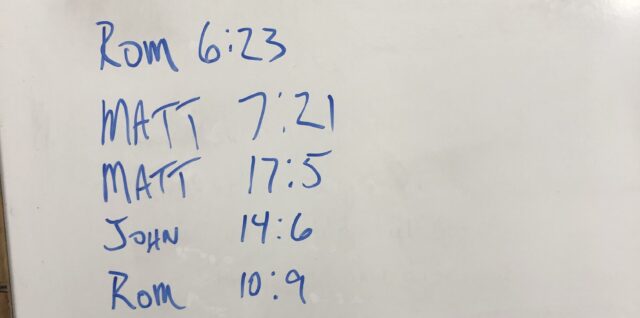 Rom 6:23
MATT 7:21
MATT 17:5
JOHN 14:6
Rom 10:9